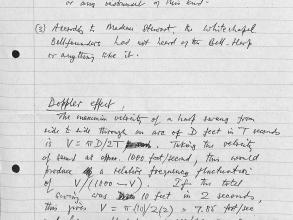 or any instrument of this kind.
(3) According to Madame Stewart, the Whitechapel
Bellfounders had not heard of the Bell-Harp
or anything like it.
Doppler effect,
The maximum velocity of a harp swung from
side to side through an arc of D feet in T seconds
is V = πD/2T. Taking the velocity
of sound as approx. 1000 feet/second, this would
produce a relative frequency fluctuation
of V/(1000 - V). If the total
swing was 10 feet in 2 seconds,
this gives V = π(10/2(2)) = 7.86 feet/sec